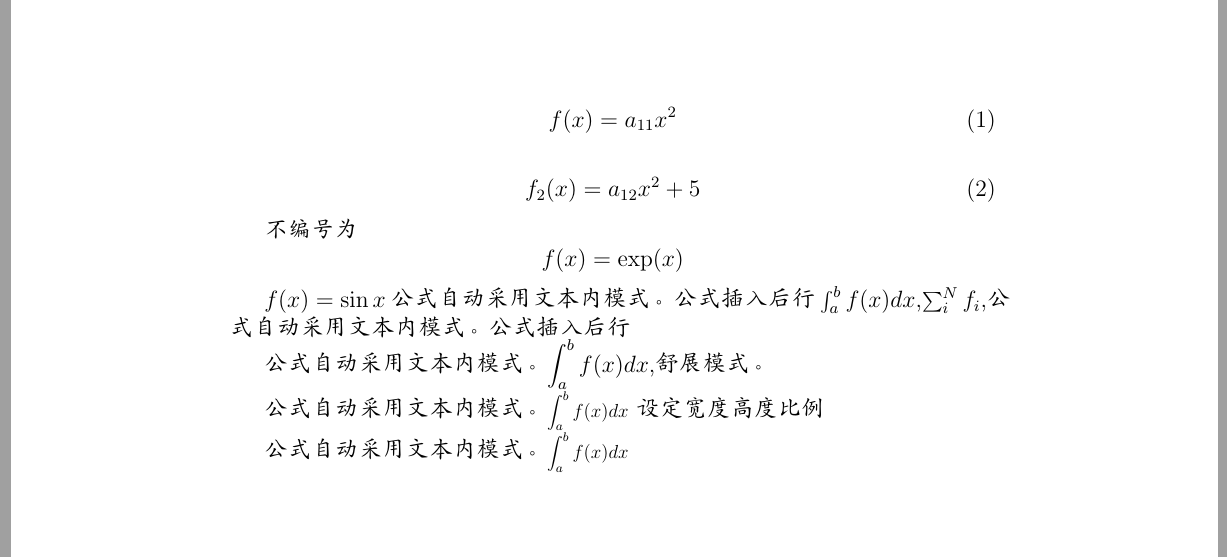 f(x) = a₁₁x² (1)
f₂(x) = a₁₂x² + 5 (2)
不编号为
f(x) = exp(x)
f(x) = sin x 公式自动采用文本内模式。公式插入后行 ∫ₐᵇ f(x)dx,∑ᵢᴺ fᵢ,公
式自动采用文本内模式。公式插入后行
公式自动采用文本内模式。∫ₐᵇ f(x)dx,舒展模式。
公式自动采用文本内模式。∫ₐᵇ f(x)dx 设定宽度高度比例
公式自动采用文本内模式。∫ₐᵇ f(x)dx